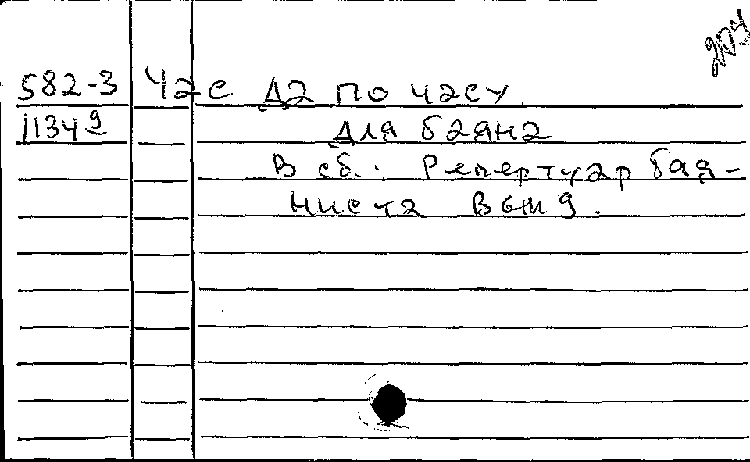 582-3 Час Да по часу
11349 Для баяна
В сб.: Репертуар бая-
ниста Вып 9.